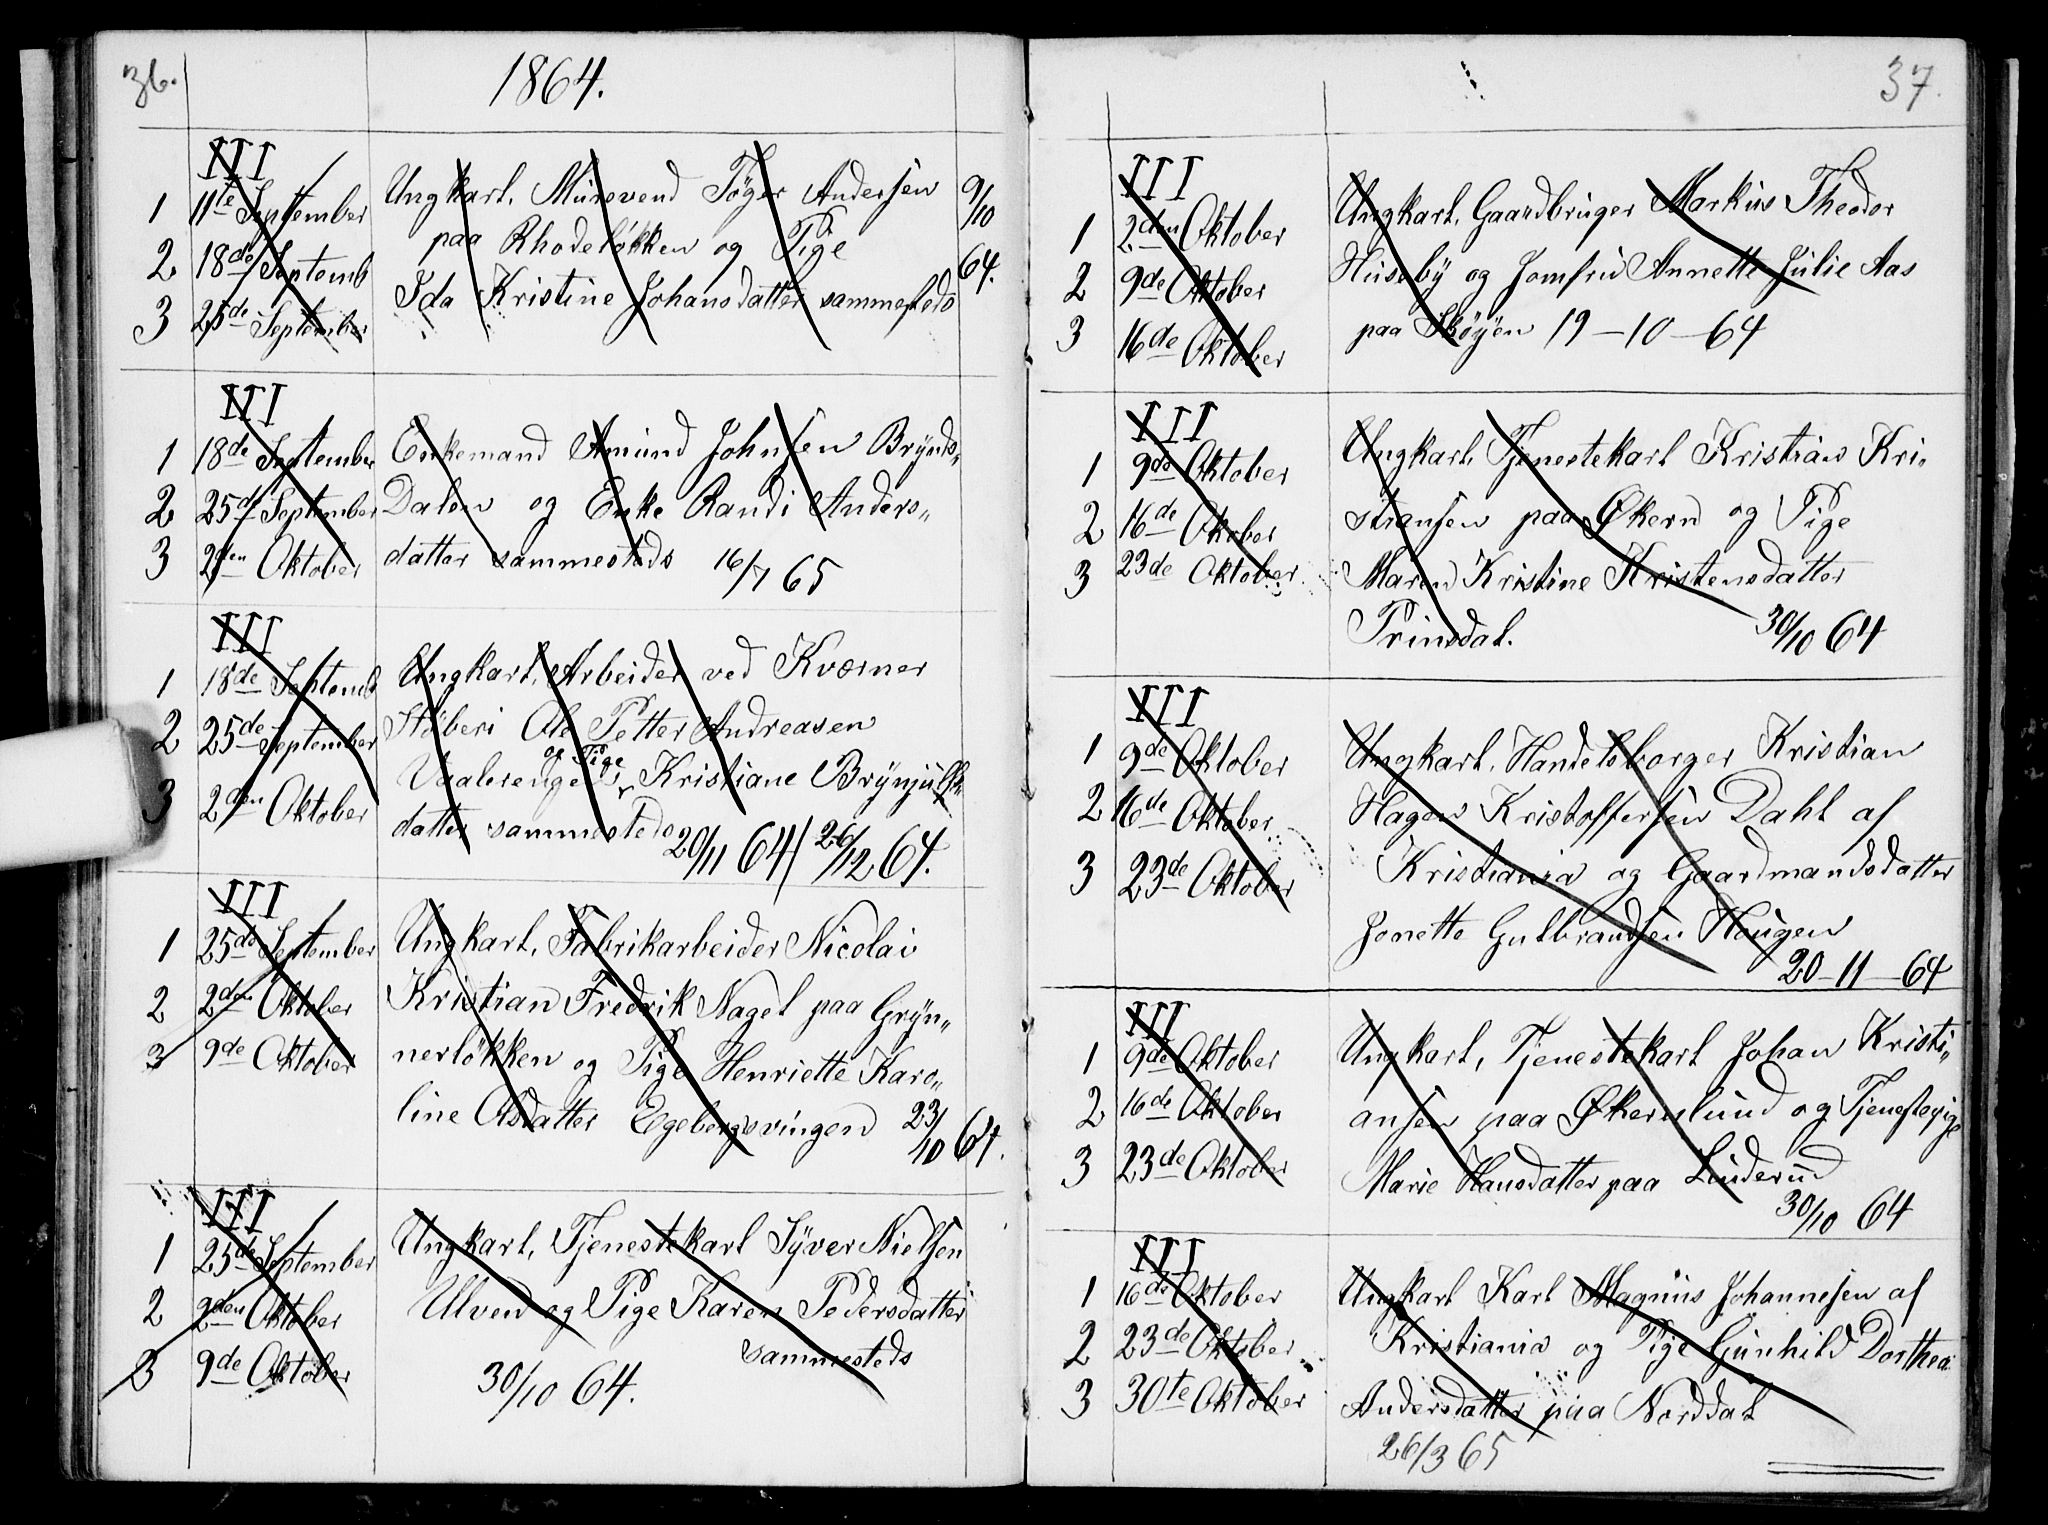 36.
1864.
III
1 11te September Ungkarl, Murevend Töger Andersen 9/10
2 18de Septemb paa Rhodeløkken og Pige 64.
3 25de September Ida Kristine Johansdatter sammesteds
III
1 18de September Enkemand Amund Johnsen Brynds„
2 25de September Dalen og Enke Randi Anders„
3 2den Oktober datter sammesteds 16/7 65
III
1 18de Septemb Ungkarl, Arbeider ved Kværner
2 25de September Støberi Ole Petter Andreasen
og Pige
Vaalerengen Kristiane Brynjulfs„
3 2den Oktober datter sammesteds
20/11 64 26/12 64.
III
1 25de September Ungkarl, Fabrikarbeider Nicolai
2 2den Oktober Kristian Fredrik Nagel paa Gryn„
3 9de Oktober nerløkken og Pige Henriette Karo„
line Olsdatter Egebergsvingen 23/10 64.
III
1 25de September Ungkarl, Tjenestekarl Syver Nielsen
2 2den Oktober Ulven og Pige Karen Pedersdatter
sammesteds
3 9de Oktober 30/10 64.
37.
III
1 2den Oktober Ungkarl, Gaardbruger Markus Theodor
2 9de Oktober Huseby og Jomfru Annette Julie Aas
3 16de Oktober paa Skøyen 19-10-64
III
1 9de Oktober Ungkarl, Tjenestekarl Kristian Kri„
2 16de Oktober stiansen paa Økern og Pige
3 23de Oktober Maren Kristine Kristensdatter
Prinsdal. 30/10 64
III
1 9de Oktober Ungkarl, Handelsborger Kristian
2 16de Oktober Hagen Kristoffersen Dahl af
3 23de Oktober Kristiania og Gaardmandsdatter
Jonette Gulbrandsen Hougen
20-11-64
III
1 9de Oktober Ungkarl, Tjenestekarl Johan Kristi„
2 16de Oktober ansen paa Økernlund og Tjenestepige
3 23de Oktober Marie Hansdatter paa Linderud
30/10 64
III
1 16de Oktober Ungkarl Karl Magnus Johannesen af
2 23de Oktober Kristiania og Pige Gunhild Dorthea
3 30te Oktober Andersdatter paa Norddal
26/3 65